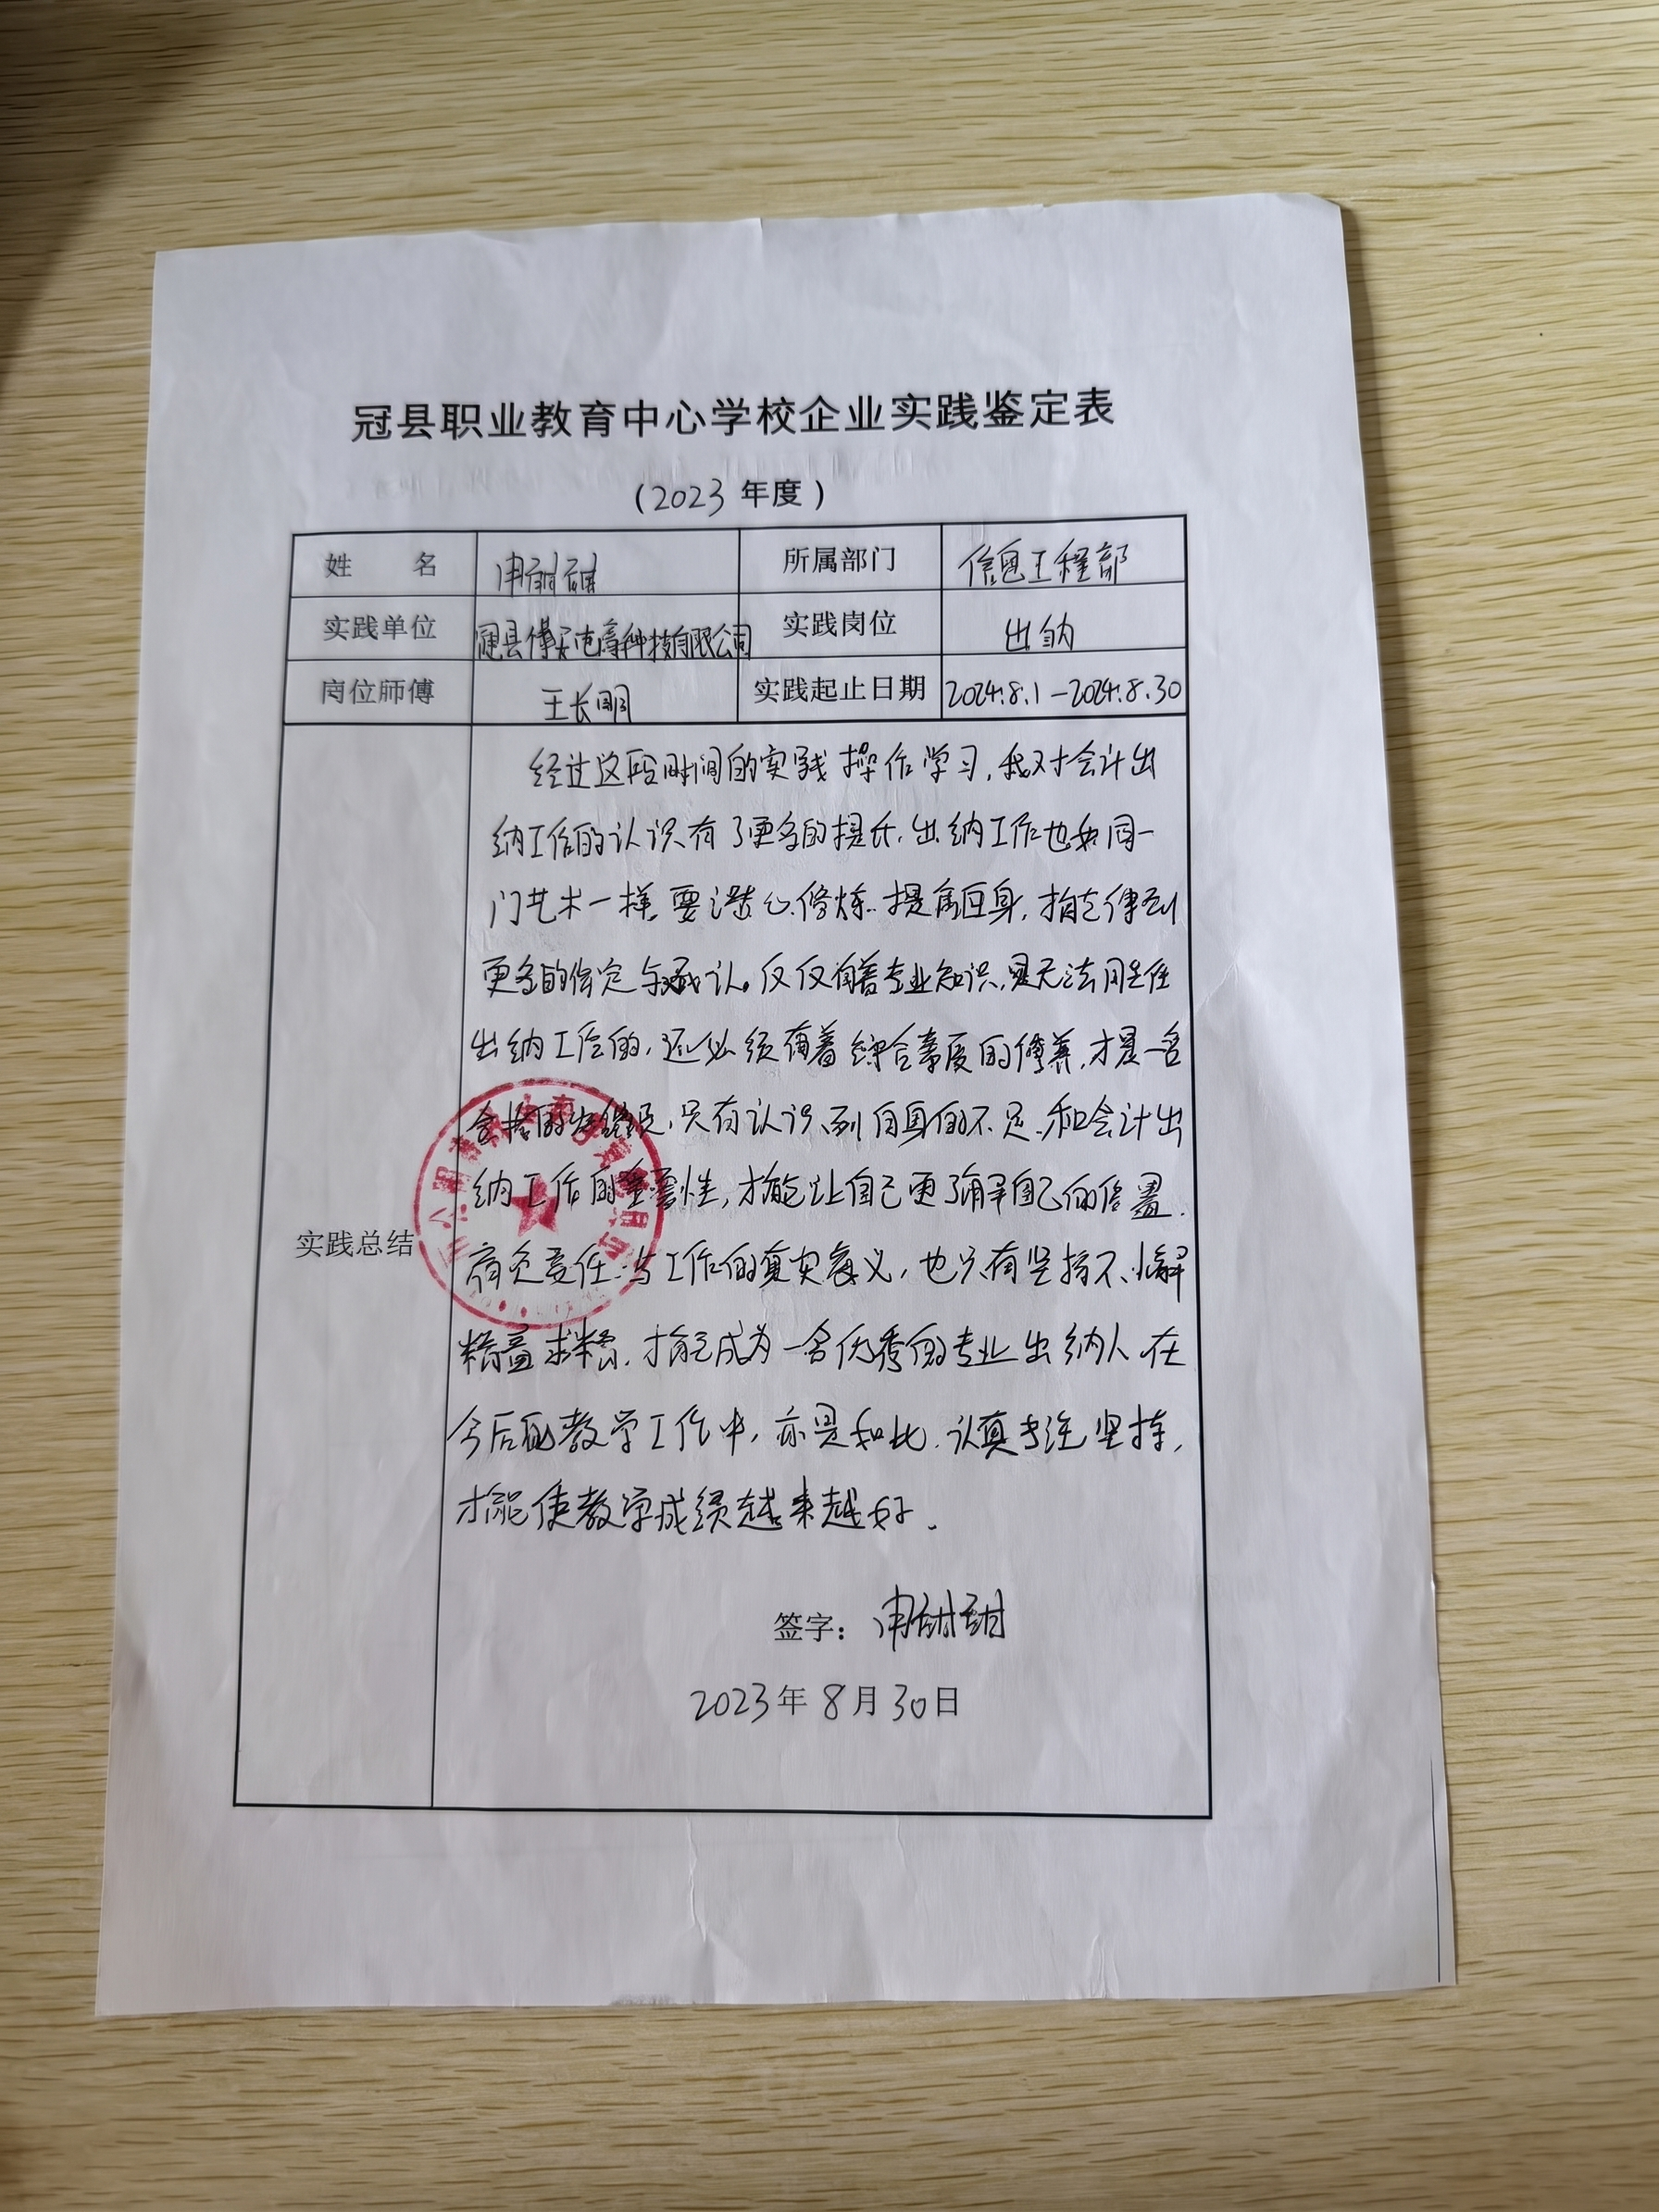 冠县职业教育中心学校企业实践鉴定表
(2023 年度)
姓 名 申甜甜 所属部门 信息工程部
实践单位 冠县博安电商科技有限公司 实践岗位 出纳
岗位师傅 王长明 实践起止日期 2024.8.1-2024.8.30
实践总结
经过这段时间的实践操作学习,我对会计出
纳工作的认识有了更多的提升.出纳工作也如同一
门艺术一样,要潜心修炼.提高自身,才能得到
更多的肯定与承认。仅仅有着专业知识,是无法胜任
出纳工作的,还必须有着综合素质的修养,才是一名
合格的出纳员,只有认识到自身的不足.和会计出
纳工作的重要性,才能让自己更了解自己的位置.
肩负责任.与工作的真实意义,也只有坚持不懈
精益求精.才能成为一名优秀的专业出纳人.在
今后的教学工作中,亦是如此.认真专注坚持,
才能使教学成绩越来越好.
签字: 申甜甜
2023年8月30日